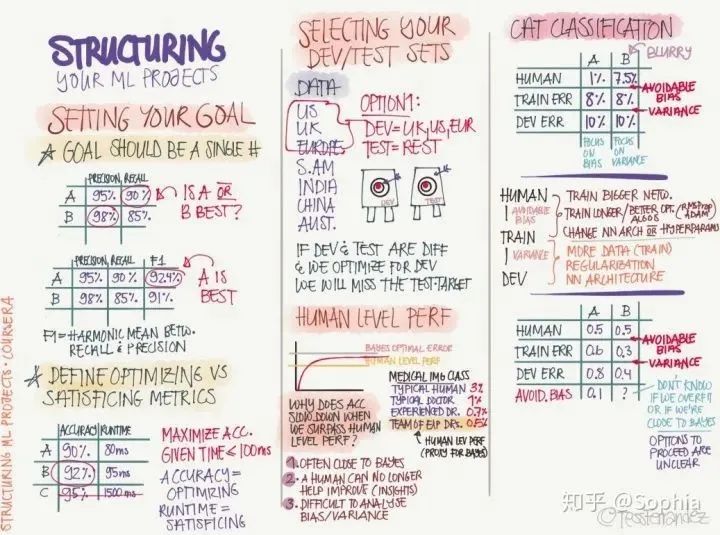 STRUCTURING
YOUR ML PROJECTS
SETTING YOUR GOAL
GOAL SHOULD BE A SINGLE #
PRECISION, RECALL
A 95% 90%
B 98% 85%
IS A OR
B BEST?
PRECISION, RECALL F1
A 95% 90% 92.4%
B 98% 85% 91%
A IS
BEST
F1 = HARMONIC MEAN BETW.
RECALL & PRECISION
DEFINE OPTIMIZING VS
SATISFICING METRICS
ACCURACY RUNTIME
A 90% 80ms
B 92% 95ms
C 95% 1500 ms
MAXIMIZE ACC.
GIVEN TIME ≤ 100ms
ACCURACY =
OPTIMIZING
RUNTIME =
SATISFICING
STRUCTURING ML PROJECTS · COURSERA
SELECTING YOUR
DEV/TEST SETS
DATA
US
UK
EUROPE
S.AM
INDIA
CHINA
AUST.
OPTION 1:
DEV = UK, US, EUR
TEST = REST
DEV
TEST
IF DEV & TEST ARE DIFF
& WE OPTIMIZE FOR DEV
WE WILL MISS THE TEST-TARGET
HUMAN LEVEL PERF
BAYES OPTIMAL ERROR
HUMAN LEVEL PERF
WHY DOES ACC
SLOW DOWN WHEN
WE SURPASS HUMAN
LEVEL PERF?
MEDICAL IMG CLASS
TYPICAL HUMAN 3%
TYPICAL DOCTOR 1%
EXPERIENCED DR. 0.7%
TEAM OF EXP DRs. 0.5%
HUMAN LEV PERF
(PROXY FOR BAYES)
1. OFTEN CLOSE TO BAYES
2. A HUMAN CAN NO LONGER
HELP IMPROVE (INSIGHTS)
3. DIFFICULT TO ANALYSE
BIAS/VARIANCE
CAT CLASSIFICATION
A B
BLURRY
HUMAN 1% 7.5%
TRAIN ERR 8% 8%
DEV ERR 10% 10%
AVOIDABLE
BIAS
VARIANCE
FOCUS
ON
BIAS
FOCUS
ON
VARIANCE
HUMAN
AVOIDABLE
BIAS
TRAIN
VARIANCE
DEV
TRAIN BIGGER NETW.
TRAIN LONGER/BETTER OPT. ALGOS (RMSPROP ADAM)
CHANGE NN ARCH OR HYPERPARAMS
MORE DATA (TRAIN)
REGULARIZATION
NN ARCHITECTURE
A B
HUMAN 0.5 0.5
TRAIN ERR 0.6 0.3
DEV ERR 0.8 0.4
AVOID. BIAS 0.1 ?
AVOIDABLE
BIAS
VARIANCE
DON'T KNOW
IF WE OVERFIT
OR IF WE'RE
CLOSE TO BAYES
OPTIONS TO
PROCEED ARE
UNCLEAR
知乎 @Sophia
@TessFerrandez